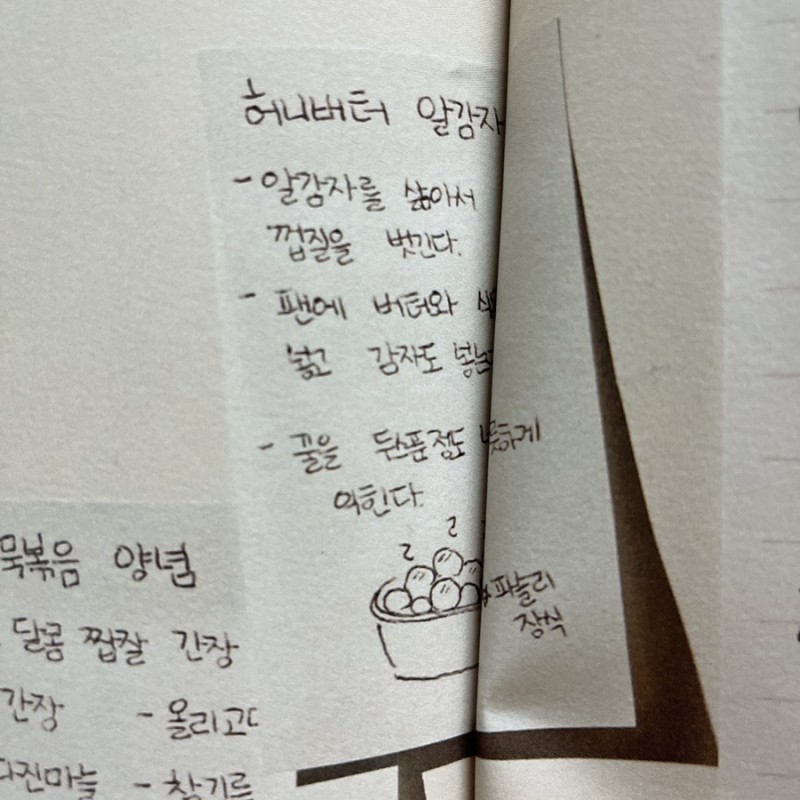 허니버터 알감자
- 알감자를 삶아서
껍질을 벗긴다.
- 팬에 버터와
넣고 감자도
- 꿀을 두스푼정도
익힌다.
파슬리
장식
묵볶음 양념
달콤 짭짤 간장
간장 - 올리고
다진마늘 - 참기름